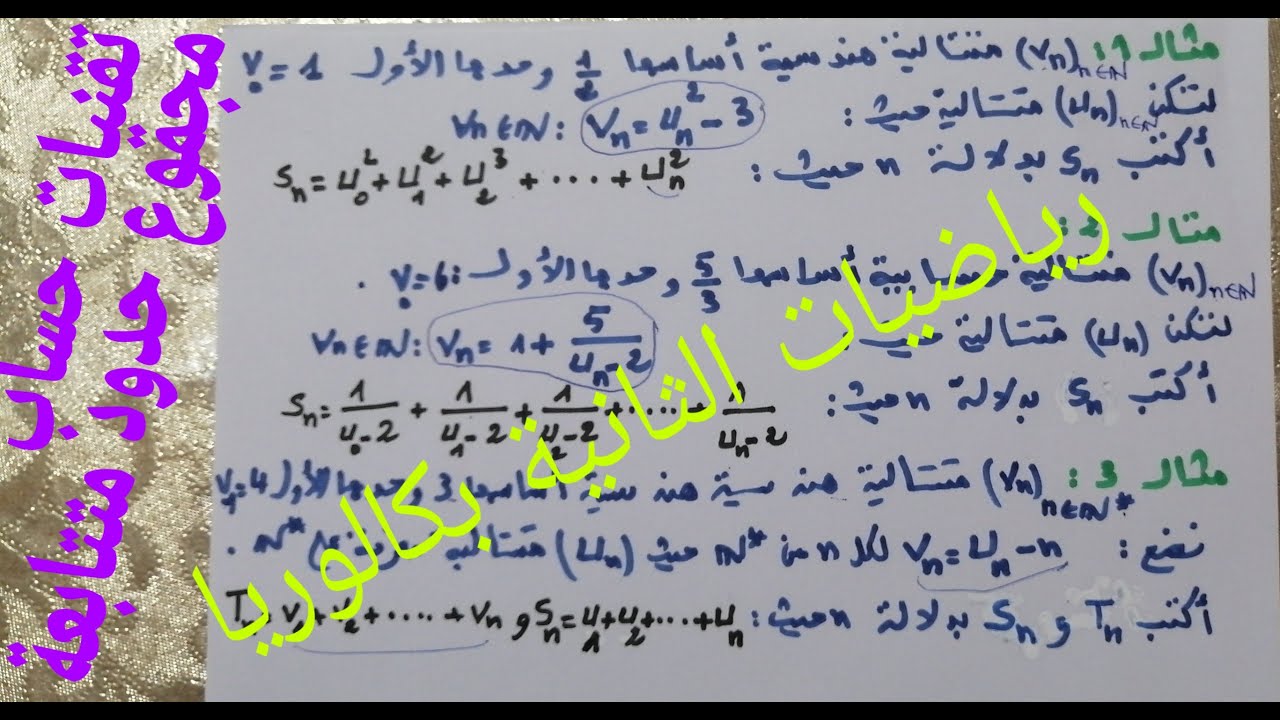 تقنيات حساب
مجموع حدود متتابعة
رياضيات الثانية بكالوريا
مثال 1: (vₙ)ₙ∈ℕ متتالية هندسية أساسها 1/2 وحدها الأول v₀ = 1
لتكن (uₙ)ₙ∈ℕ متتالية حيث: ∀n∈ℕ: vₙ = uₙ² - 3
أكتب Sₙ بدلالة n حيث: Sₙ = u₀² + u₁² + u₂³ + ... + uₙ²
مثال 2:
(vₙ)ₙ∈ℕ متتالية حسابية أساسها 5/3 وحدها الأول v₀ = 6.
لتكن (uₙ) متتالية حيث ∀n∈ℕ: vₙ = 1 + 5/(uₙ-2)
أكتب Sₙ بدلالة n حيث: Sₙ = 1/(u₀-2) + 1/(u₁-2) + 1/(u₂-2) + ... + 1/(uₙ-2)
مثال 3: (vₙ)ₙ∈ℕ* متتالية هندسية أساسها 3 وحدها الأول v₁ = 4
نضع: vₙ = uₙ - n لكل n من ℕ* حيث (uₙ) متتالية ℕ*.
أكتب Tₙ و Sₙ بدلالة n حيث: Sₙ = u₁ + u₂ + ... + uₙ و Tₙ = v₁ + v₂ + .... + vₙ